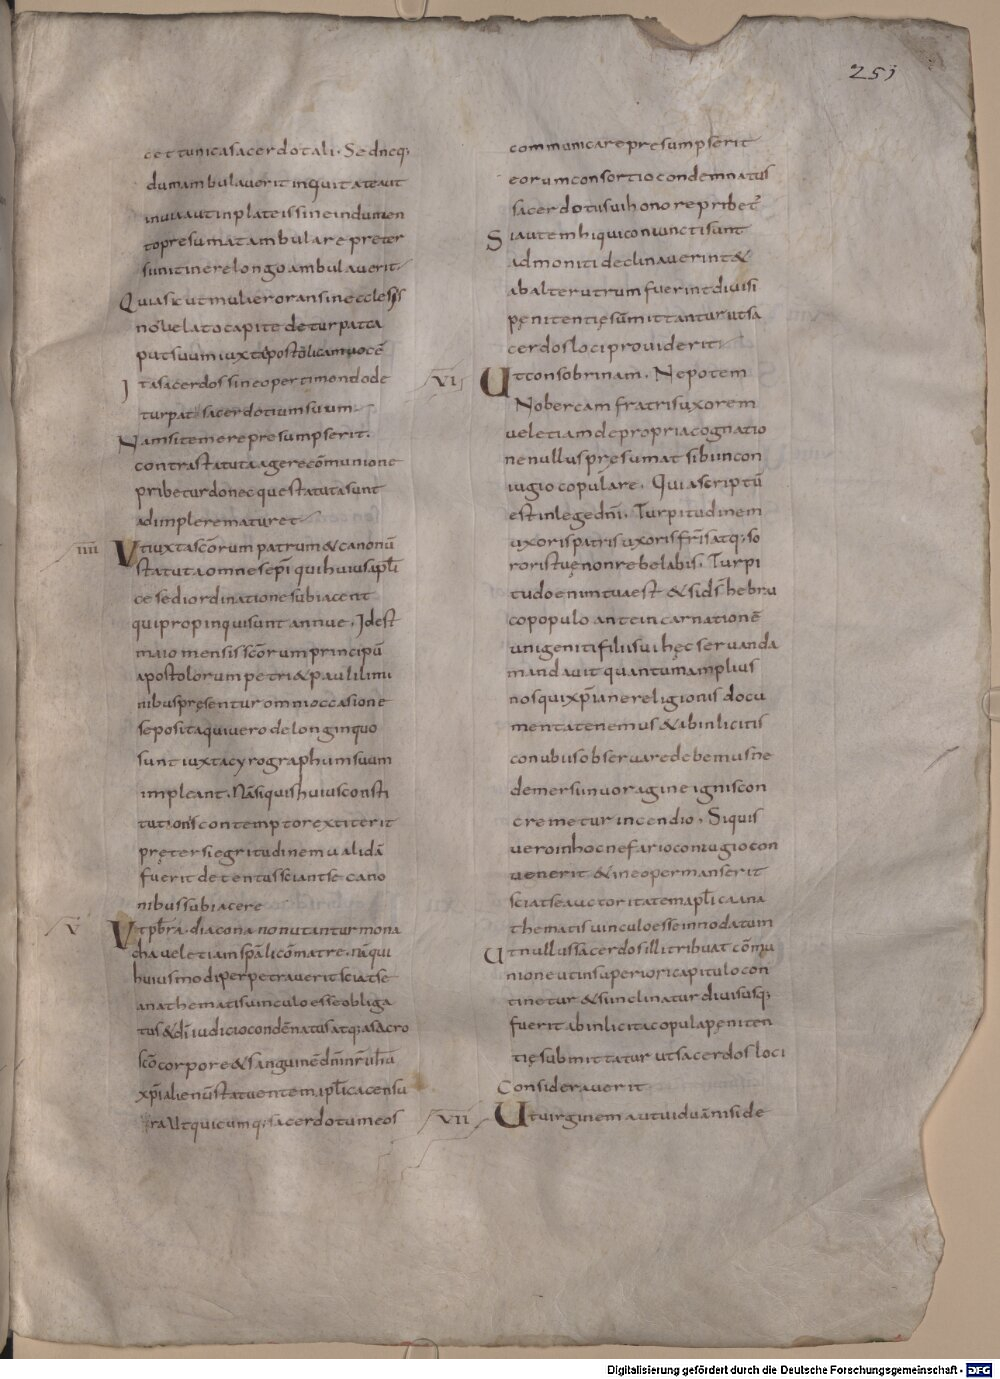 251
cet tunica sacerdotali. Sed neq;
dum ambulauerit in quitate aut
in uia aut in plateis sine indumen
to presumat ambulare preter
si in itinere longo ambulauerit
Quia sicut mulier orans in ecclesiis
nō uelato capite deturpat ca
put suum iuxta apostolicam uocē
Ita sacerdos sine opertimondo de
turpat sacerdotium suum
Nam si temere presumpserit.
contra statuta agere cōmunione
pribetur donec que statuta sunt
adimplere maturet
IIII Vt iuxta sc̄orum patrum & canonū
statuta omnes ep̄i qui huius apl̄i
ce sedi ordinatione subiacent
qui propinqui sunt annue. Id est
maio mensis sc̄orum principū
apostolorum petri & pauli limi
nibus pręsentur omni occasione
seposita qui uero de longinquo
sunt iuxta cyrographum suum
impleant. Nā si quis huius consti
tutionis contemptor extiterit
pręter si egritudinem ualidā
fuerit detentus sciant se cano
nibus subiacere
V Vt pb̄ra. diacona nonutantur mona
cha uel etiam sp̄ali cōmatre. nā qui
huiusmodi perpetrauerit sciat se
anathematis uinculo esse obliga
tus & dī iudicio condēnatus atq; a sacro
sc̄o corpore & sanguine dn̄i nr̄i ih̄u
xp̄i alienū statuentem apl̄ica censu
ra Ut quicumq; sacerdotum eos
communicare presumpserit
eorum consortio condemnatus
sacerdotu sui honore pribet̄
Si autem hi qui coniuncti sunt
admoniti declinauerint &
ab alterutrum fuerint diuisi
pęnitentię sūmittantur ut sa
cerdos loci prouiderit
VI Ut consobrinam. Nepotem
Nobercam fratris uxorem
uel etiam de propria cognatio
ne nullus pręsumat sibi in con
iugio copulare. Quia scriptū
est in lege dn̄i. Turpitudinem
uxoris patris uxoris fr̄is atq; so
roris tuę non rebelabis. Turpi
tudo enim tua est & si ds̄ hebra
co populo ante incarnationē
unigeniti filii sui hęc seruanda
mandauit quantum amplius
nos qui xp̄iane religionis docu
menta tenemus & ab inlicitis
conubiis obseruare debemus ne
demersi in uoragine ignis con
cremetur incendio. Si quis
uero in hoc nefario coniugio con
uenerit & in eo permanserit
sciat se auctoritatem apl̄ica ana
thematis uinculo esse innodatum
Ut nullus sacerdos illi tribuat cōmu
nione ut in superiori capitulo con
tinetur & si inclinatur diuisusq;
fuerit ab inlicita copula pęniten
tię submittatur ut sacerdos loci
Considerauerit
VII Ut uirginem aut uiduā nisi de
Digitalisierung gefördert durch die Deutsche Forschungsgemeinschaft - DFG